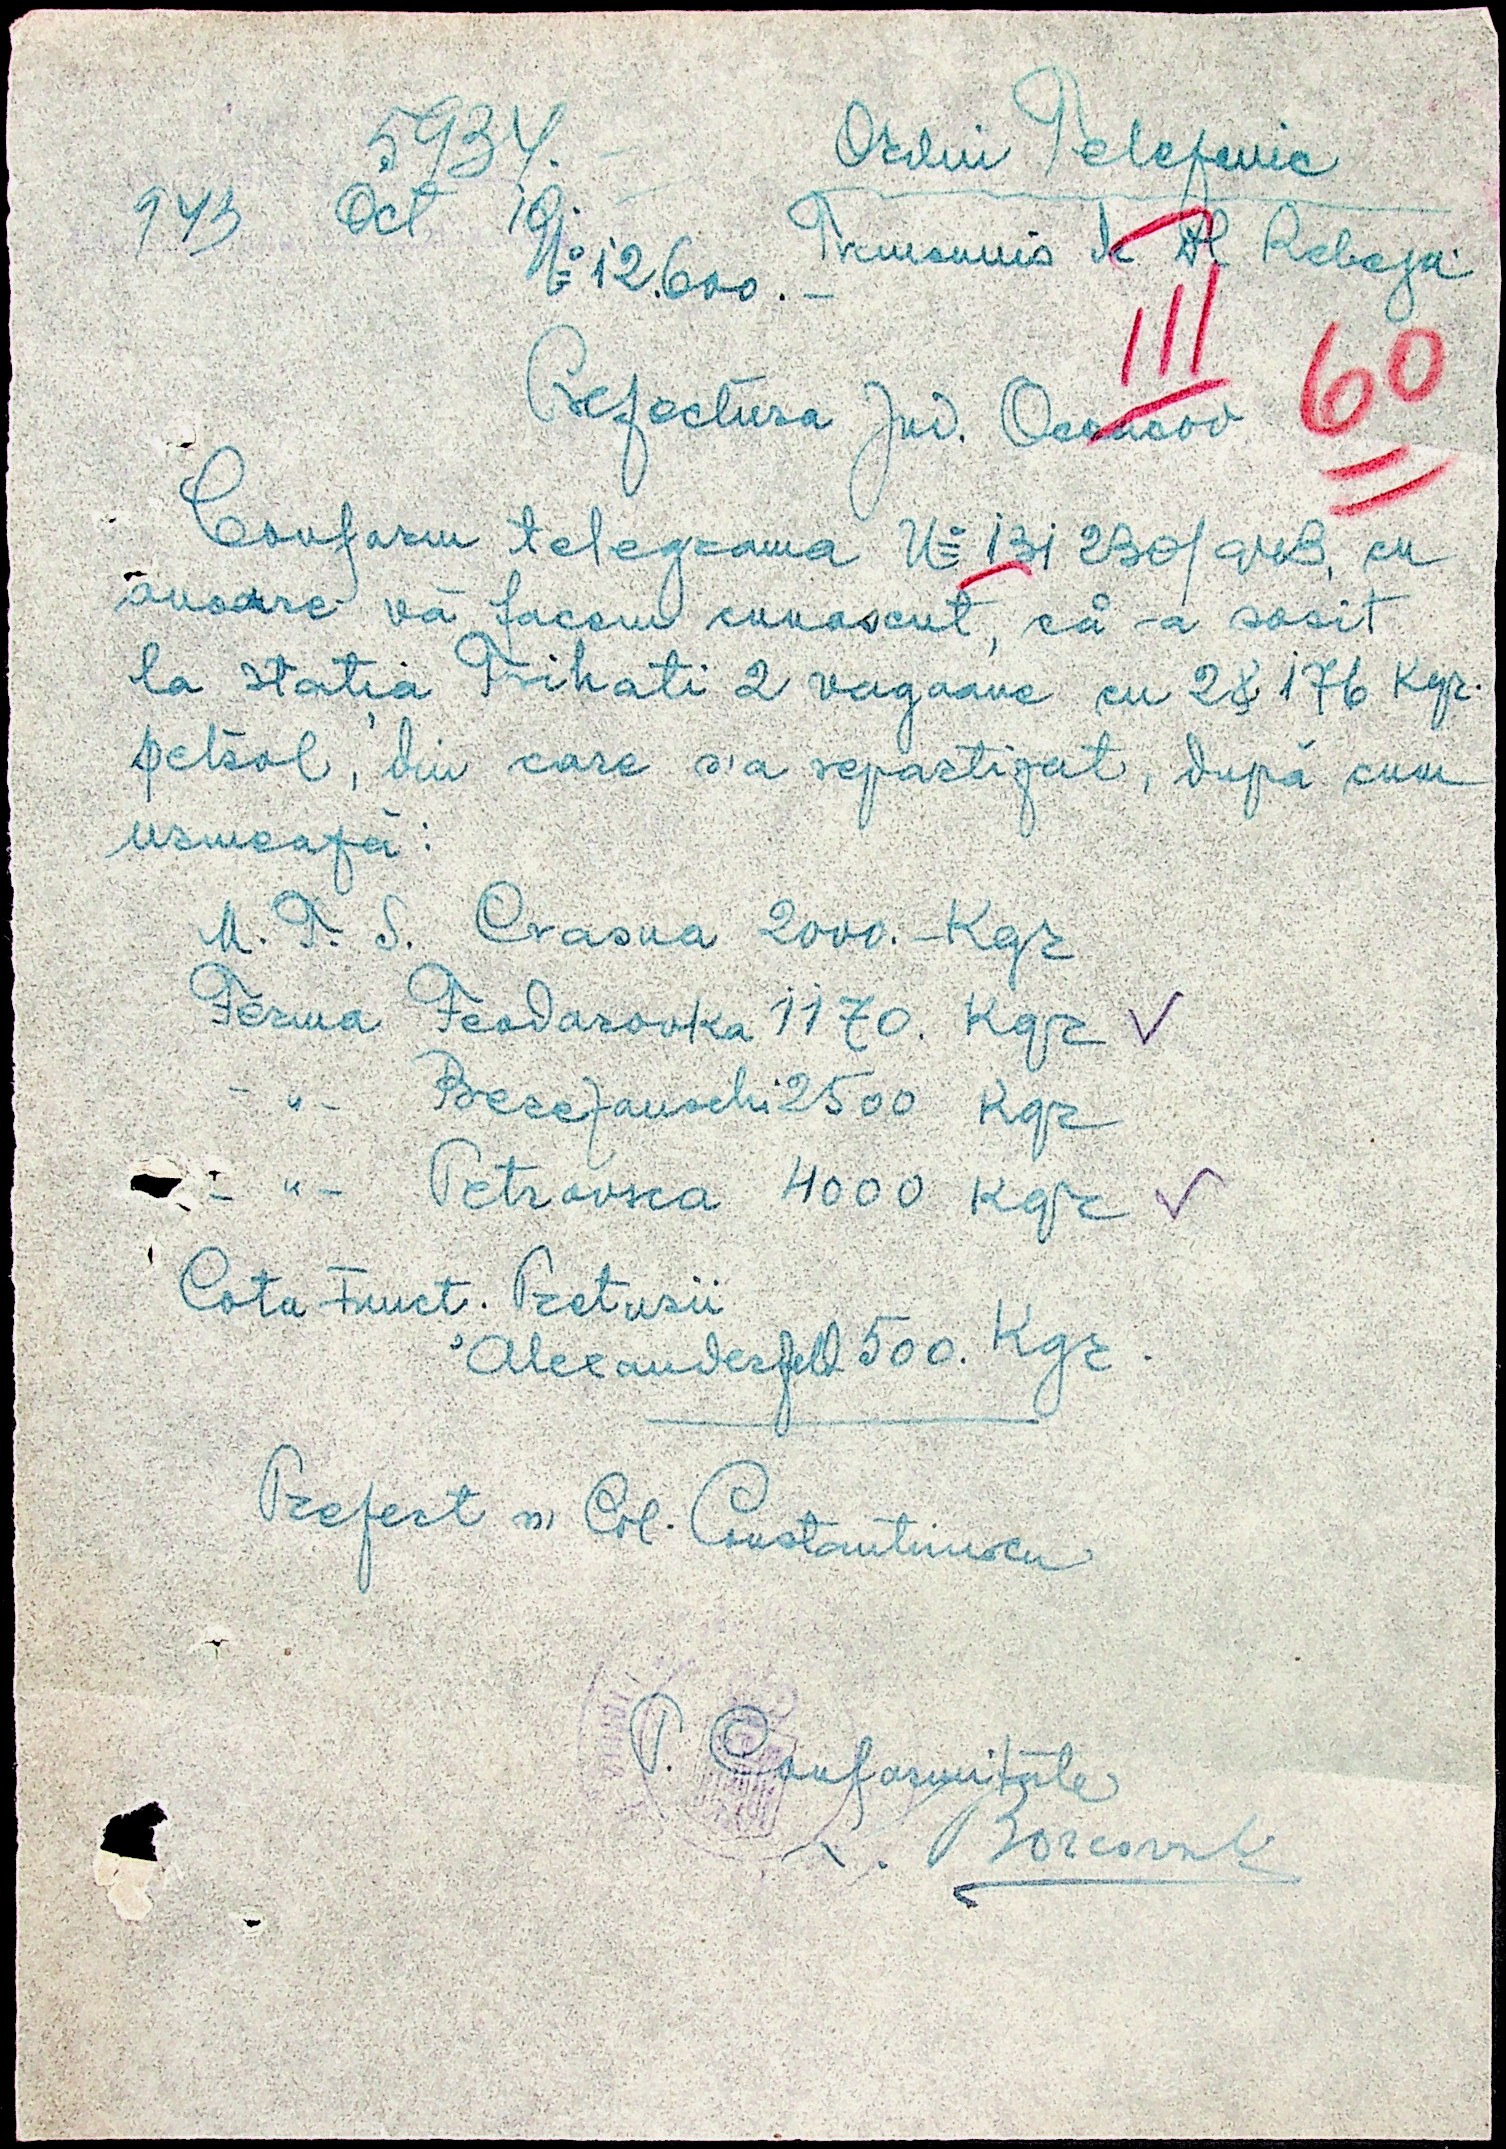 5934.-
943 Oct 19.
Nº 12.600.-
Ordin Telefonic
Transmis de Al Rebeja
III
60
Prefectura Jud. Oceacov
Conform telegrama Nº 131230/943, cu
onoare vă facem cunoscut, că-a sosit
la stația Trihati 2 vagoane cu 28176 Kgr.
petrol, din care s'a repartizat, după cum
urmează:
M. T. S. Crasna 2000.-Kgr
Ferma Feodorovka 1170. Kgr ✓
-"- Berezanschi 2500 Kgr
-"- Petrovsca 4000 Kgr ✓
Cota Funct. Preturii
Alexanderfeld 500. Kgr.
Prefect ss Col. Constantinescu
P. Conformitate